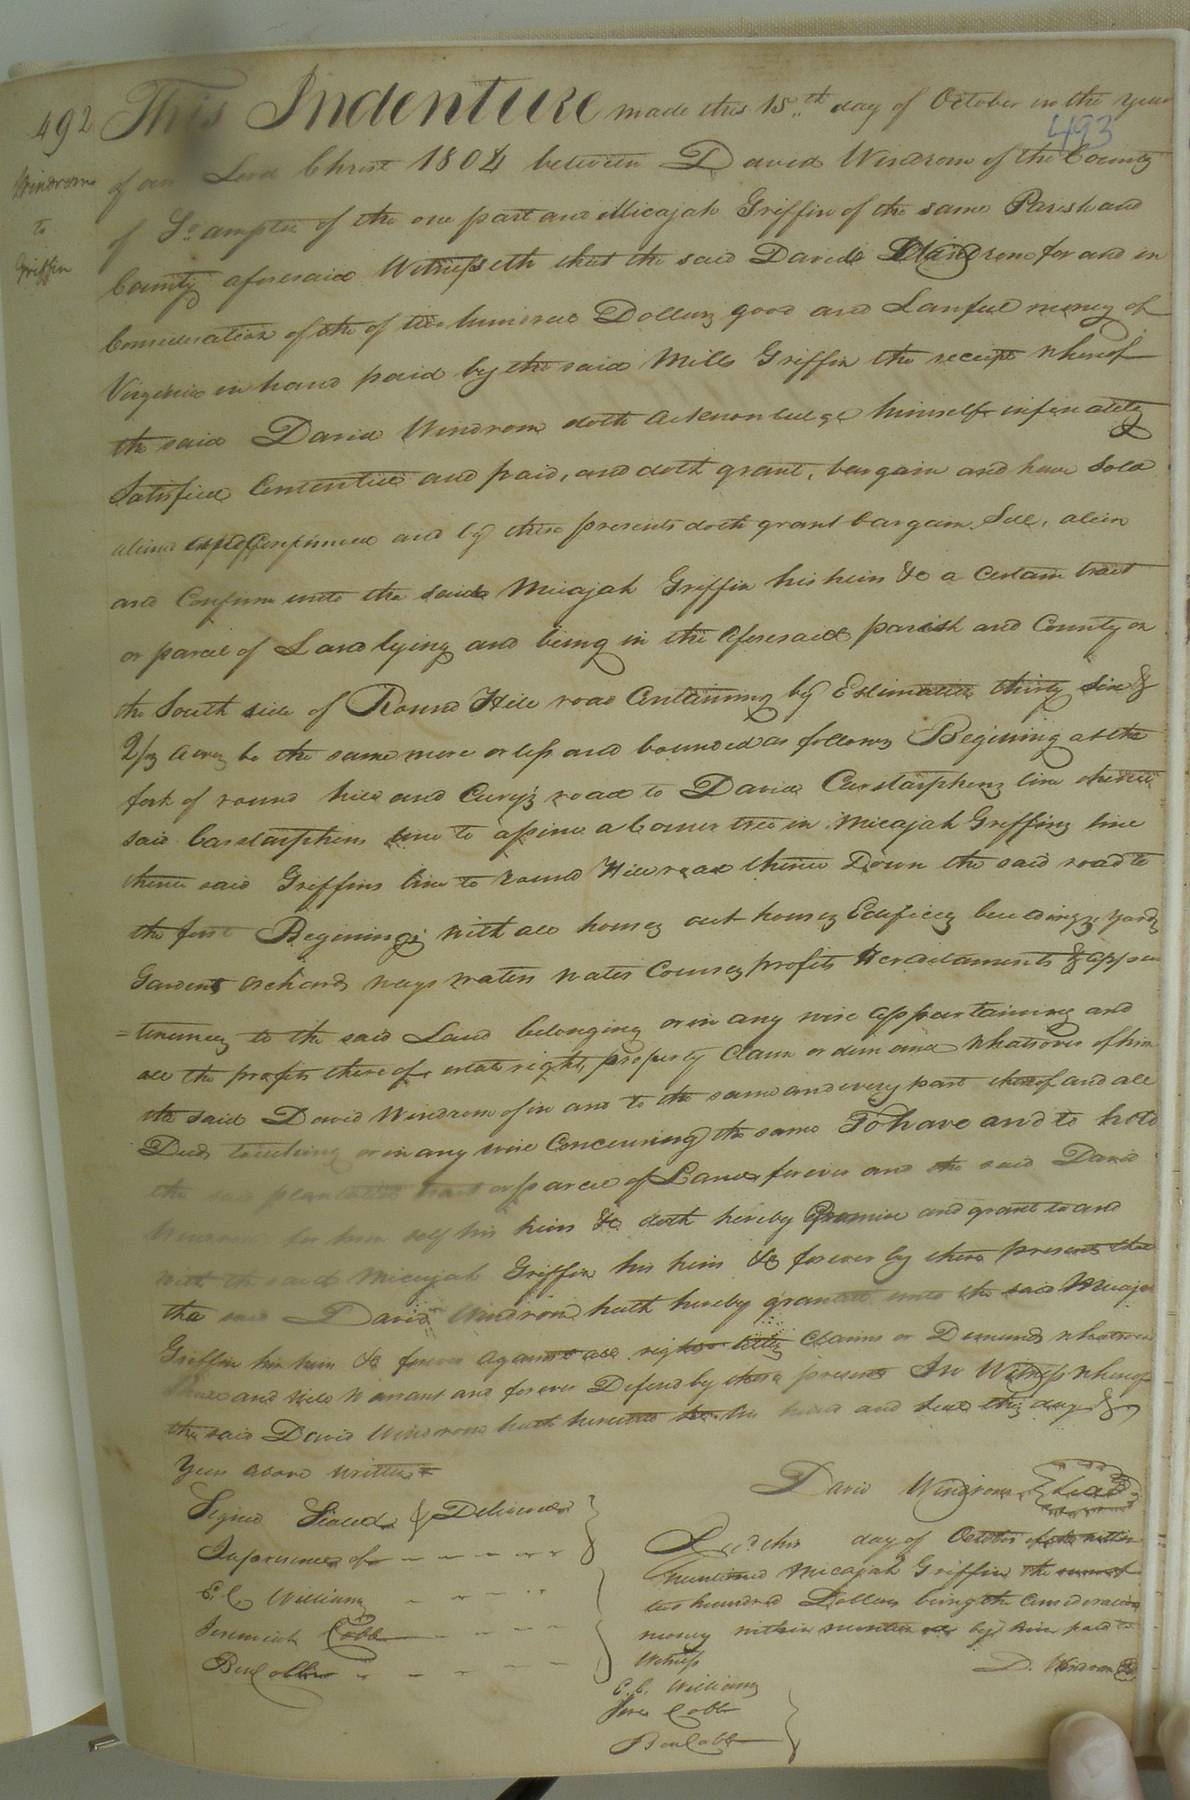 492
493
Windrom
to
Griffin
This Indenture made this 15th day of October in the year
of our Lord Christ 1804 between David Windrom of the County
of So ampton of the one part and Micajah Griffin of the same Parish and
County aforesaid Witnesseth that the said David Windrom for and in
Consideration of the of two hundred Dollars good and Lawful money of
Virginia in hand paid by the said Mills Griffin the receipt whereof
the said David Windrom doth acknowledge himself
Satisfied Contented and paid, and doth grant, bargain and have Sold
aliend Confirmed and by these presents doth grant bargain, Sell, alien
and Confirm unto the said Micajah Griffin his heirs &c a Certain tract
or parcel of Land lying and being in the aforesaid parish and County on
the South side of Round Hill road Containing by Estimation thirty six &
2/3 acres be the same more or less and bounded as follows Begining at the
fork of round hill and Cury's road to David Carstarphens line thence
said Carstarphens line to a pine a Corner tree in Micajah Griffins line
thence said Griffins line to round Hill road thence Down the said road to
the first Begining with all houses out houses Edifices buildings, yards
Gardens orchards ways waters water Courses profits Heradaments & appur
=tenances to the said Land belonging or in any wise appurtaining and
all the profits thereof estate right, property Claim or demand whatsover of him
the said David Windrom of in and to the same and every part thereof and all
Deeds touching or in any wise Concerning the same To have and to hold
the said plantation tract or parcel of Land forever and the said David
Windrom for him self his heirs &c doth hereby Promise and grant to and
with the said Micajah Griffin his heirs &c forever by these presents that
the said David Windrom hath hereby granted unto the said Micajah
Griffin his heirs &c forever against all rights titles Claims or Demands whatsoever
Shall and will Warrant and forever Defend by these presents In Witness whereof
the said David Windrom hath hereunto set his hand and seal this day &
Year above written
Signed Sealed & Delivered
In presence of
E. C. Williams
Jeremiah Cobb
Ben Cobb
David Windrom Seal
Recd this day of October of the within
mentioned Micajah Griffin the sum of
two hundred Dollars being the Consideration
money within mentioned by him paid to
Witness
D. Windrom
E. C. Williams
Jere Cobb
Ben Cobb